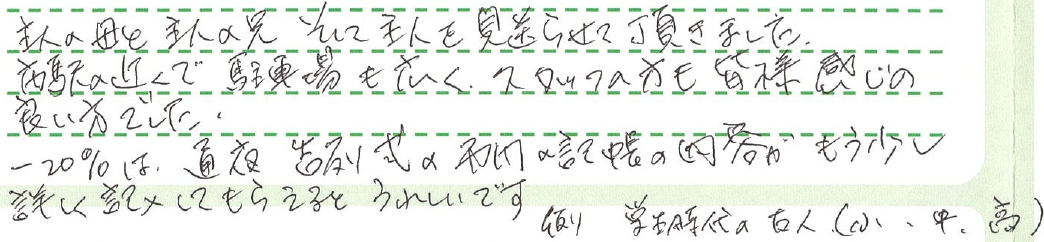 主人の母も 主人の兄 そして主人も見送らせて頂きました.
西駅の近くで 駐車場も広く. スタッフの方も皆様感じの
良い方でした.
-20%は、通夜 告別式の 受付の記帳の内容が もう少し
詳しく記入してもらえるとうれしいです
例 学生時代の友人 (小、中、高)